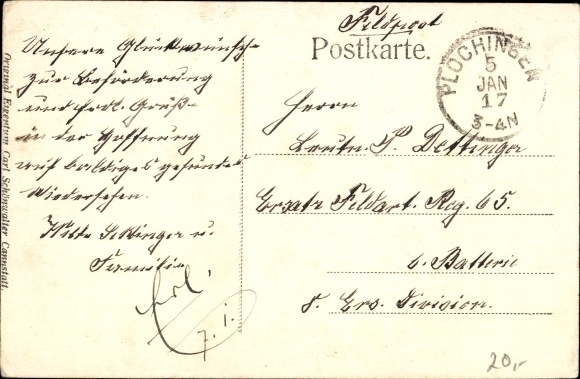 Feldpost
Postkarte.
PLOCHINGEN
5
JAN
17
3-4N
Unsere Glückwünsche
zur Beförderung
und frdl. Grüß-
in der Hoffnung
auf baldiges gesundes
Wiedersehen.
u.
Familie
Herrn
Leutn. P. Dettinger
Ersatz Feldart. Reg. 65.
6. Batterie
8. Ers. Division.
erl.
7. 1.
20,-
Original Eigentum Carl Schönwalter Cannstatt.